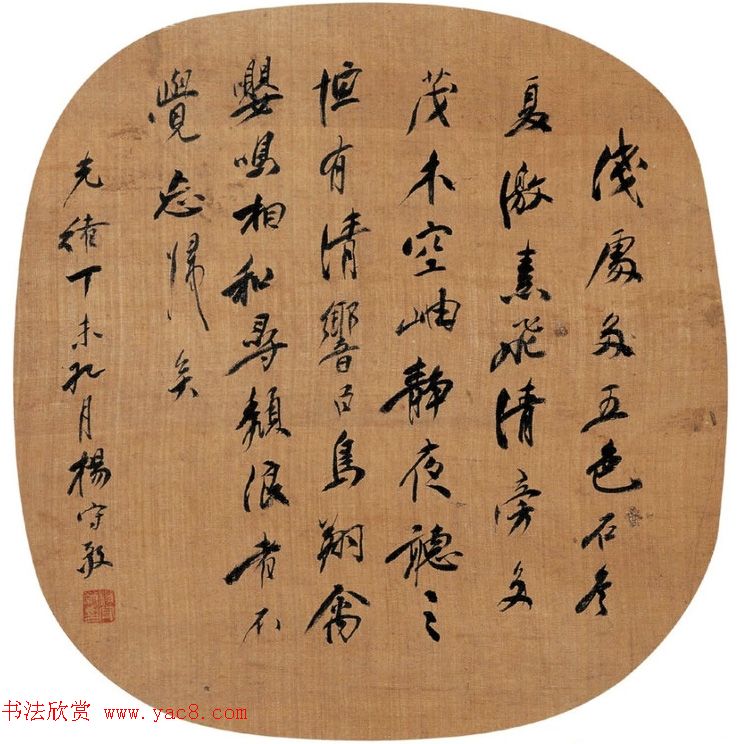 淺處多五色石冬
夏激素飛清旁多
茂木空岫靜夜聽之
恒有清響百鳥翔禽
嚶鳴相和尋頹浪者不
覺忘歸矣
光緒丁未九月楊守敬
书法欣赏 www.yac8.com